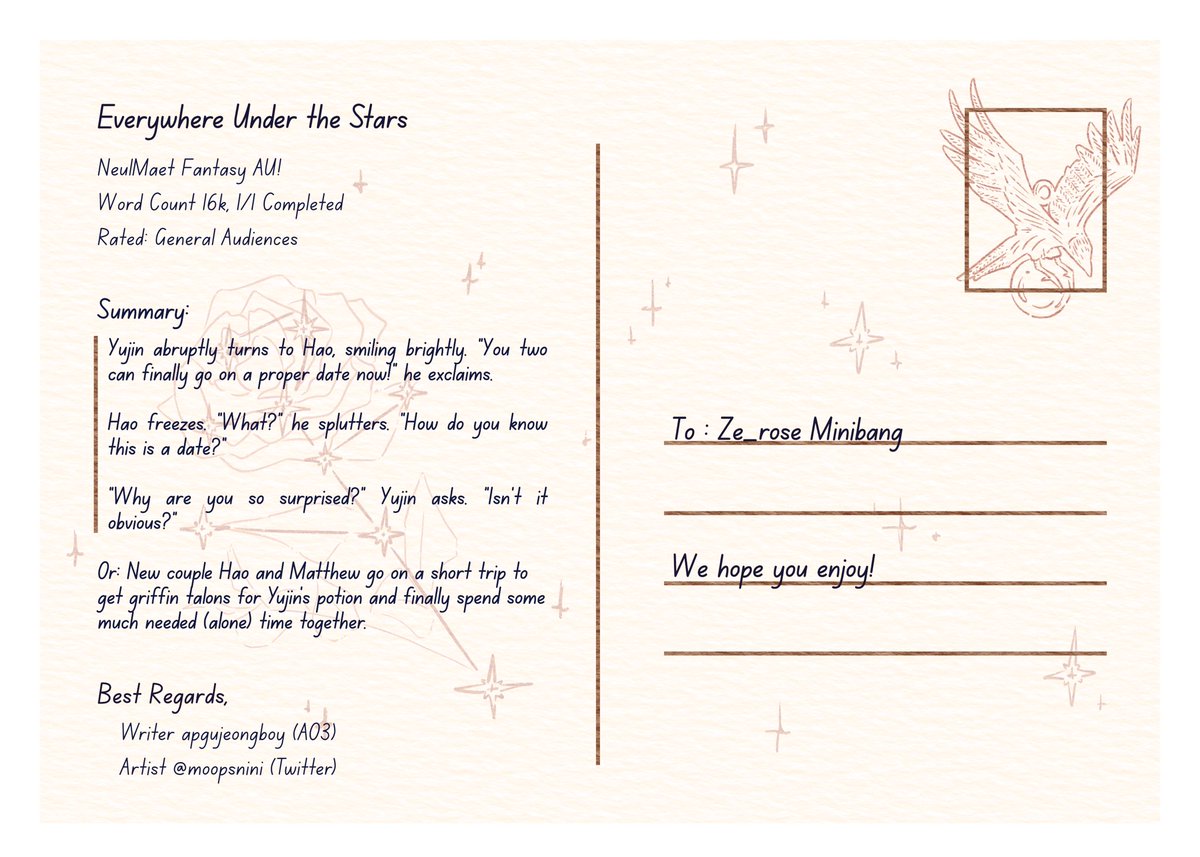 Everywhere Under the Stars
NeulMaet Fantasy AU!
Word Count 16k, 1/1 Completed
Rated: General Audiences
Summary:
Yujin abruptly turns to Hao, smiling brightly. "You two
can finally go on a proper date now!" he exclaims.
Hao freezes. "What?" he splutters. "How do you know
this is a date?"
"Why are you so surprised?" Yujin asks. "Isn't it
obvious?"
Or: New couple Hao and Matthew go on a short trip to
get griffin talons for Yujin's potion and finally spend some
much needed (alone) time together.
Best Regards,
Writer apgujeongboy (AO3)
Artist @moopsnini (Twitter)
To : Ze_rose Minibang
We hope you enjoy!